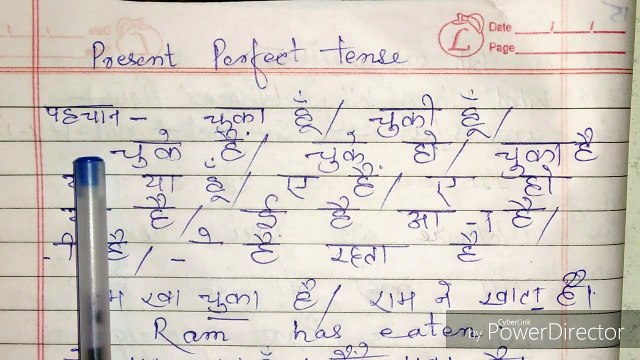 Date
Page
Present Perfect tense
पहचान - चुका हूँ / चुकी हूँ /
चुके हैं / चुके हो / चुका है
या हूँ / ए हैं / ए हो
है / ई है आ -ा है /
-ी है / -े हैं रहता है
खा चुका है / राम ने खाता है।
Ram has eaten
by CyberLink PowerDirector